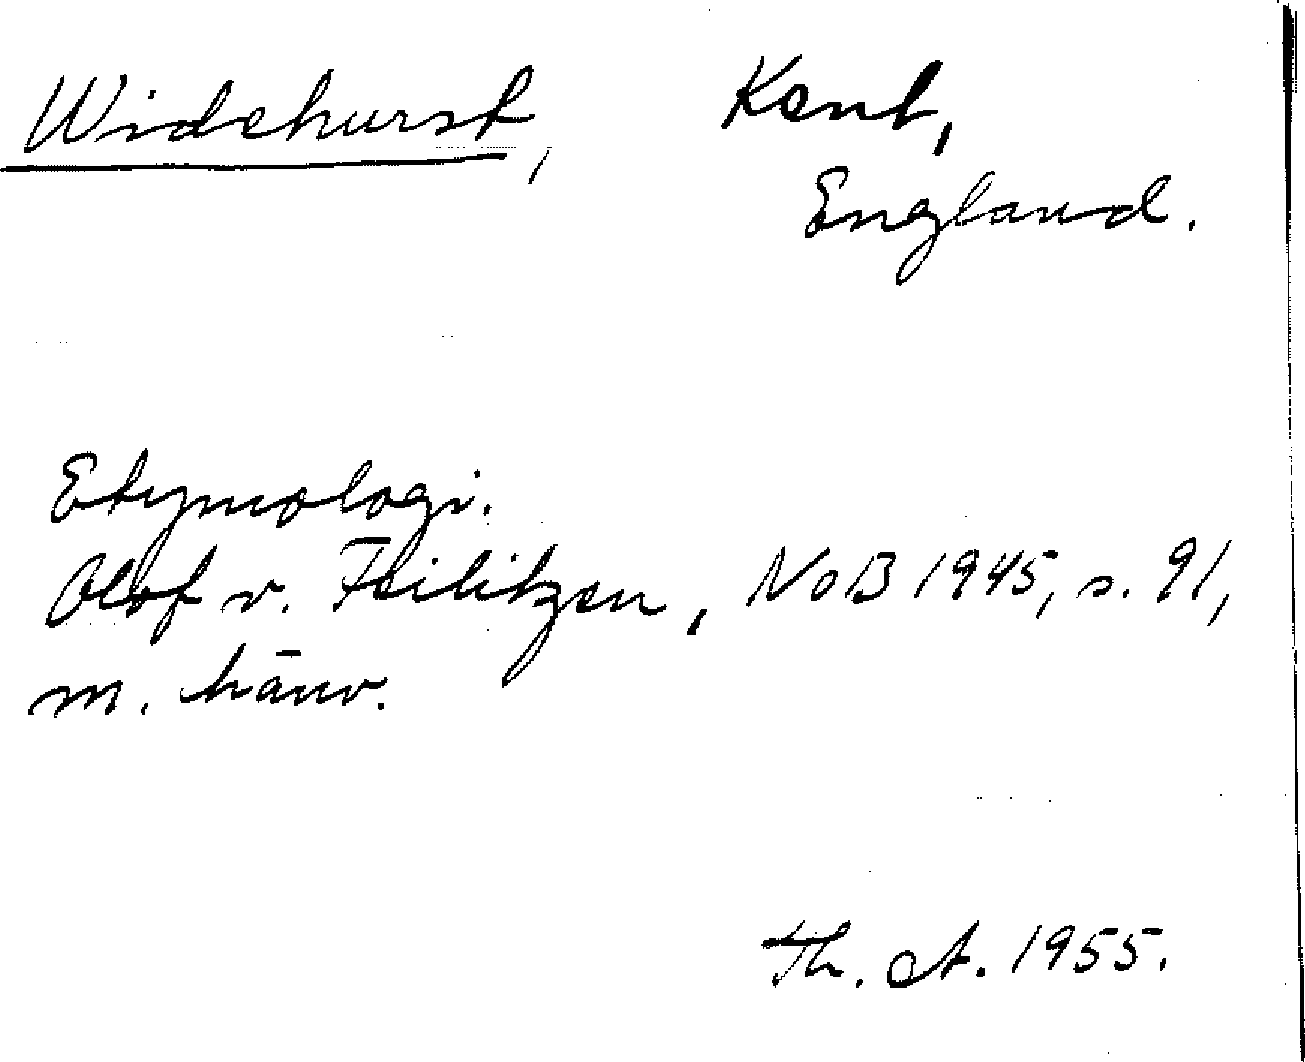 Widehurst, Kent,
England.
Etymologi.
Olof v. Feilitzen, NoB 1945, s. 91,
m. hänv.
Th. A. 1955.